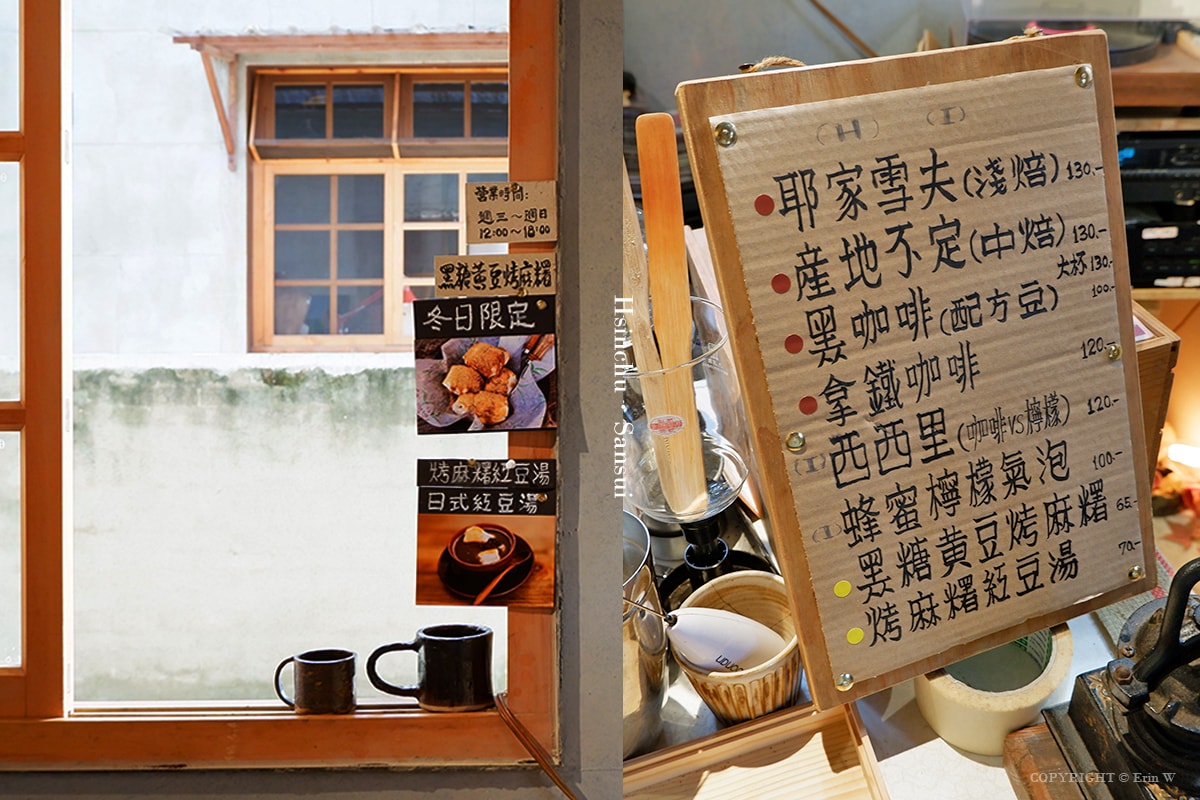 營業時間:
週三~週日
12:00~18:00
黑糖黃豆烤麻糬
冬日限定
烤麻糬紅豆湯
日式紅豆湯
Hsinchu Sansui
(H) (I)
耶家雪夫(淺焙) 130.-
產地不定(中焙) 130.-
大杯 130.-
黑咖啡(配方豆) 100.-
拿鐵咖啡 120.-
(I) 西西里(咖啡VS檸檬) 120.-
(I) 蜂蜜檸檬氣泡 100.-
黑糖黃豆烤麻糬 65.-
烤麻糬紅豆湯 70.-
COPYRIGHT © Erin W